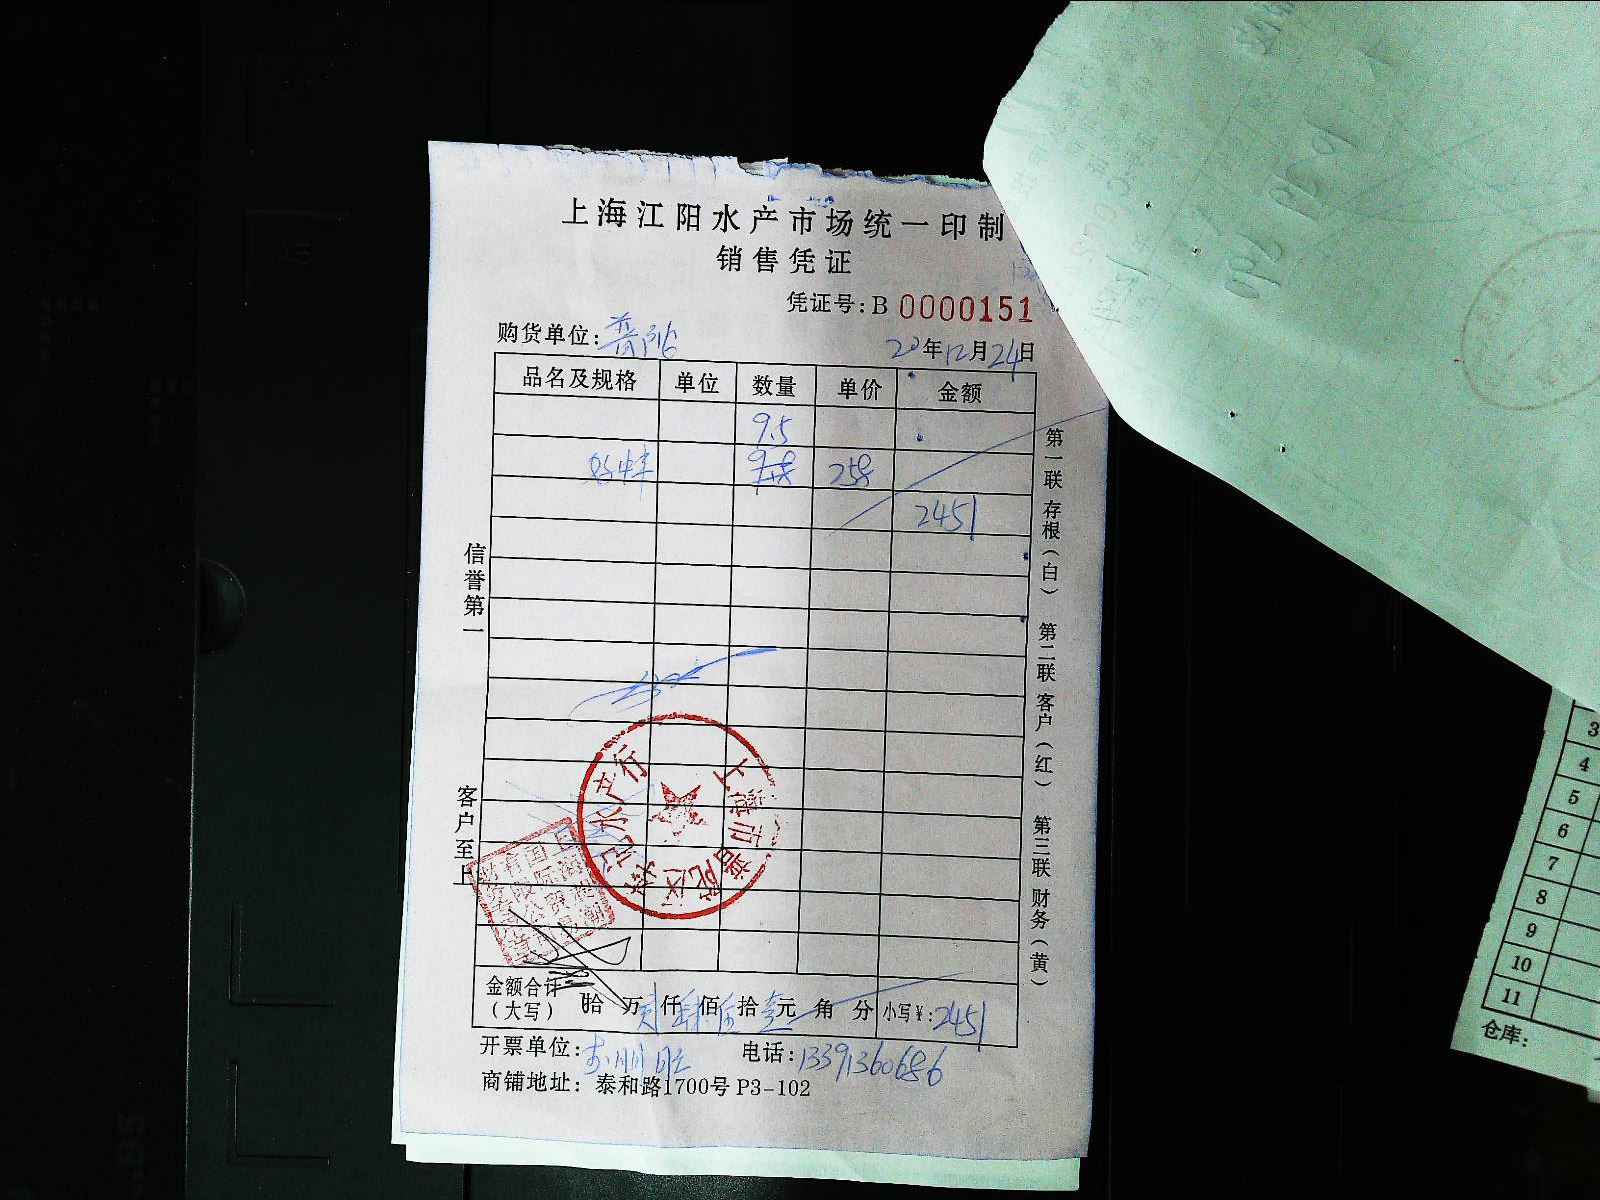 上海江阳水产市场统一印制
销售凭证
凭证号:B 0000151
购货单位:普陀
20年12月24日
品名及规格 单位 数量 单价 金额
9.5
258
2451
信誉第一
客户至上
第一联 存根（白） 第二联 客户（红） 第三联 财务（黄）
上海市普陀区 水产行
金额合计（大写） 拾 万 贰仟 肆佰 伍拾 壹元 角 分 小写¥:2451
开票单位:
电话:13391360686
商铺地址: 泰和路1700号 P3-102
3
4
5
6
7
8
9
10
11
仓库: